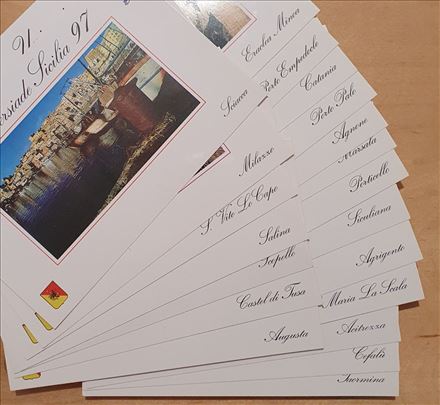 U
ersiade Sicilia 97
Sciacca
Milazzo
S. Vito Lo Capo
Salina
Scopello
Castel di Tusa
Augusta
Eraclea Minoa
Porto Empedocle
Catania
Porto Palo
Agnone
Marsala
Porticello
Siculiana
Agrigento
Maria La Scala
Acitrezza
Cefalù
Taormina